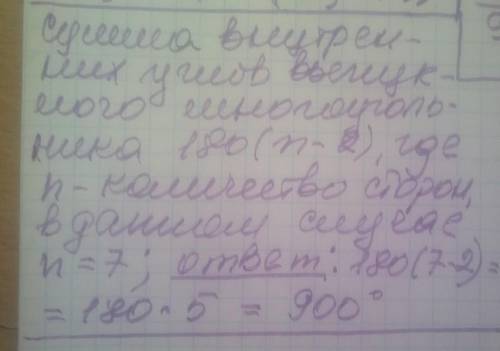 сумма внутрен-
них углов выпук-
лого многоуголь-
ника 180(n-2), где
n-количество сторон,
в данном случае
n=7; ответ: 180(7-2)=
= 180·5 = 900°